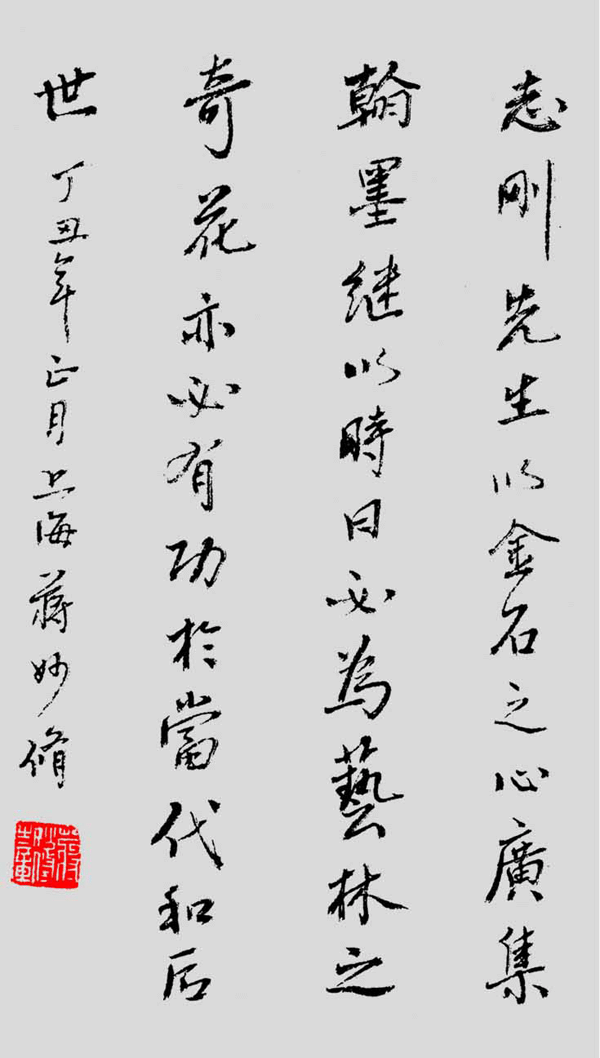 志刚先生以金石之心廣集
翰墨继以時日必為藝林之
奇花亦必有功於當代和后
世 丁丑年正月上海蒋妙脩